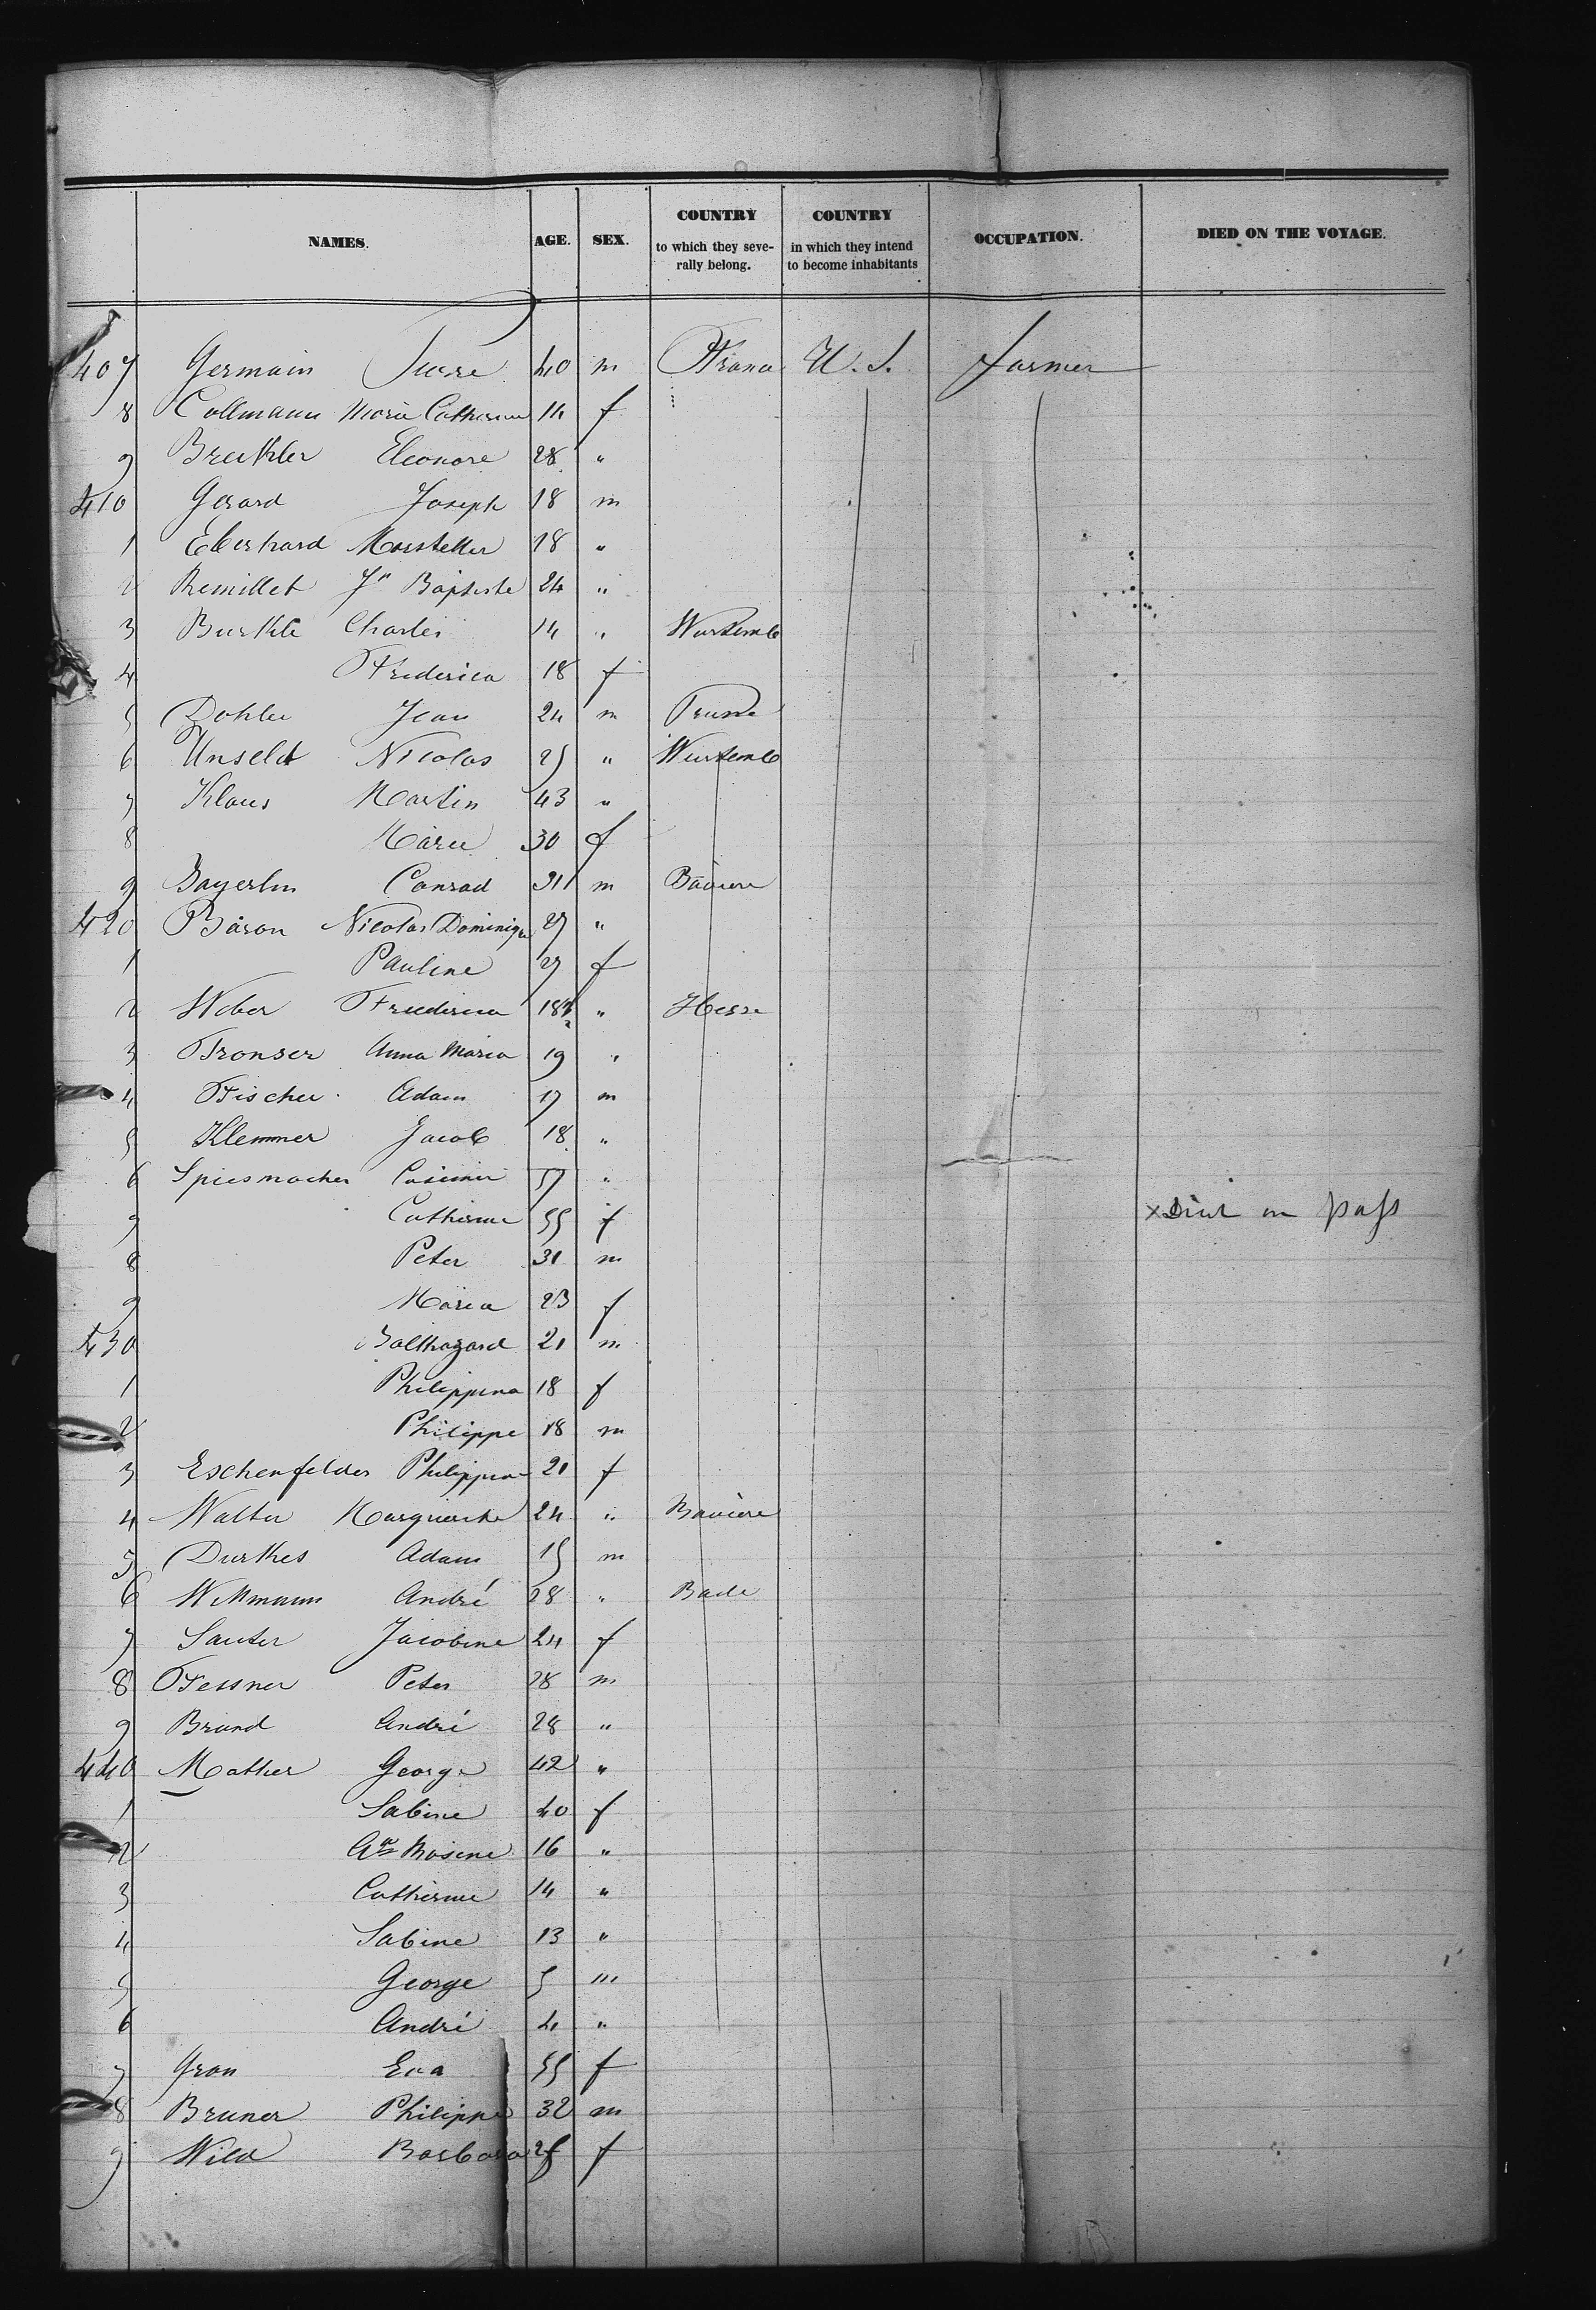 NAMES. AGE. SEX. COUNTRY to which they severally belong. COUNTRY in which they intend to become inhabitants OCCUPATION. DIED ON THE VOYAGE.
407 Germain 40 m U.S. farmer
8 Collmann Marie Catherine 14 f
9 Eleonore 28 "
410 Gerard Joseph 18 m
1 Eberhard 18 "
2 Remillet Jn Baptiste 24 "
3 Burkle Charles 14 " Wurtemb
4 Frederica 18 f
5 Dohler Jean 24 m Prusse
6 Unseldt Nicolas 25 " Wurtemb
7 Klaus Martin 43 "
8 Marie 30 f
9 Bayerlin Conrad 31 m Bavière
420 Baron Nicolas Dominique 27 "
1 Pauline 27 f
2 Weber Friederica 18 " Hesse
3 Fronser Anna Maria 19 "
4 Fischer Adam 17 m
5 Klemmer Jacob 18 "
6 Spiesmacher Casimir 57 "
7 Catherine 55 f x Died on pass
8 Peter 31 m
9 Maria 23 f
430 Balthazard 21 m
1 Philippina 18 f
2 Philippe 18 m
3 Eschenfelder Philippina 21 f
4 Walter Marguerite 24 " Bavière
5 Durkes Adam 15 m
6 André 28 " Bade
7 Sauter Jacobine 24 f
8 Fessner Peter 28 m
9 Brand André 28 "
440 Mather George 42 "
1 Sabine 40 f
2 Rosine 16 "
3 Catherine 14 "
4 Sabine 13 "
5 George 5 m
6 André 4 "
7 Gron Eva 55 f
8 Bruner Philippe 32 m
9 Wild Barbara f